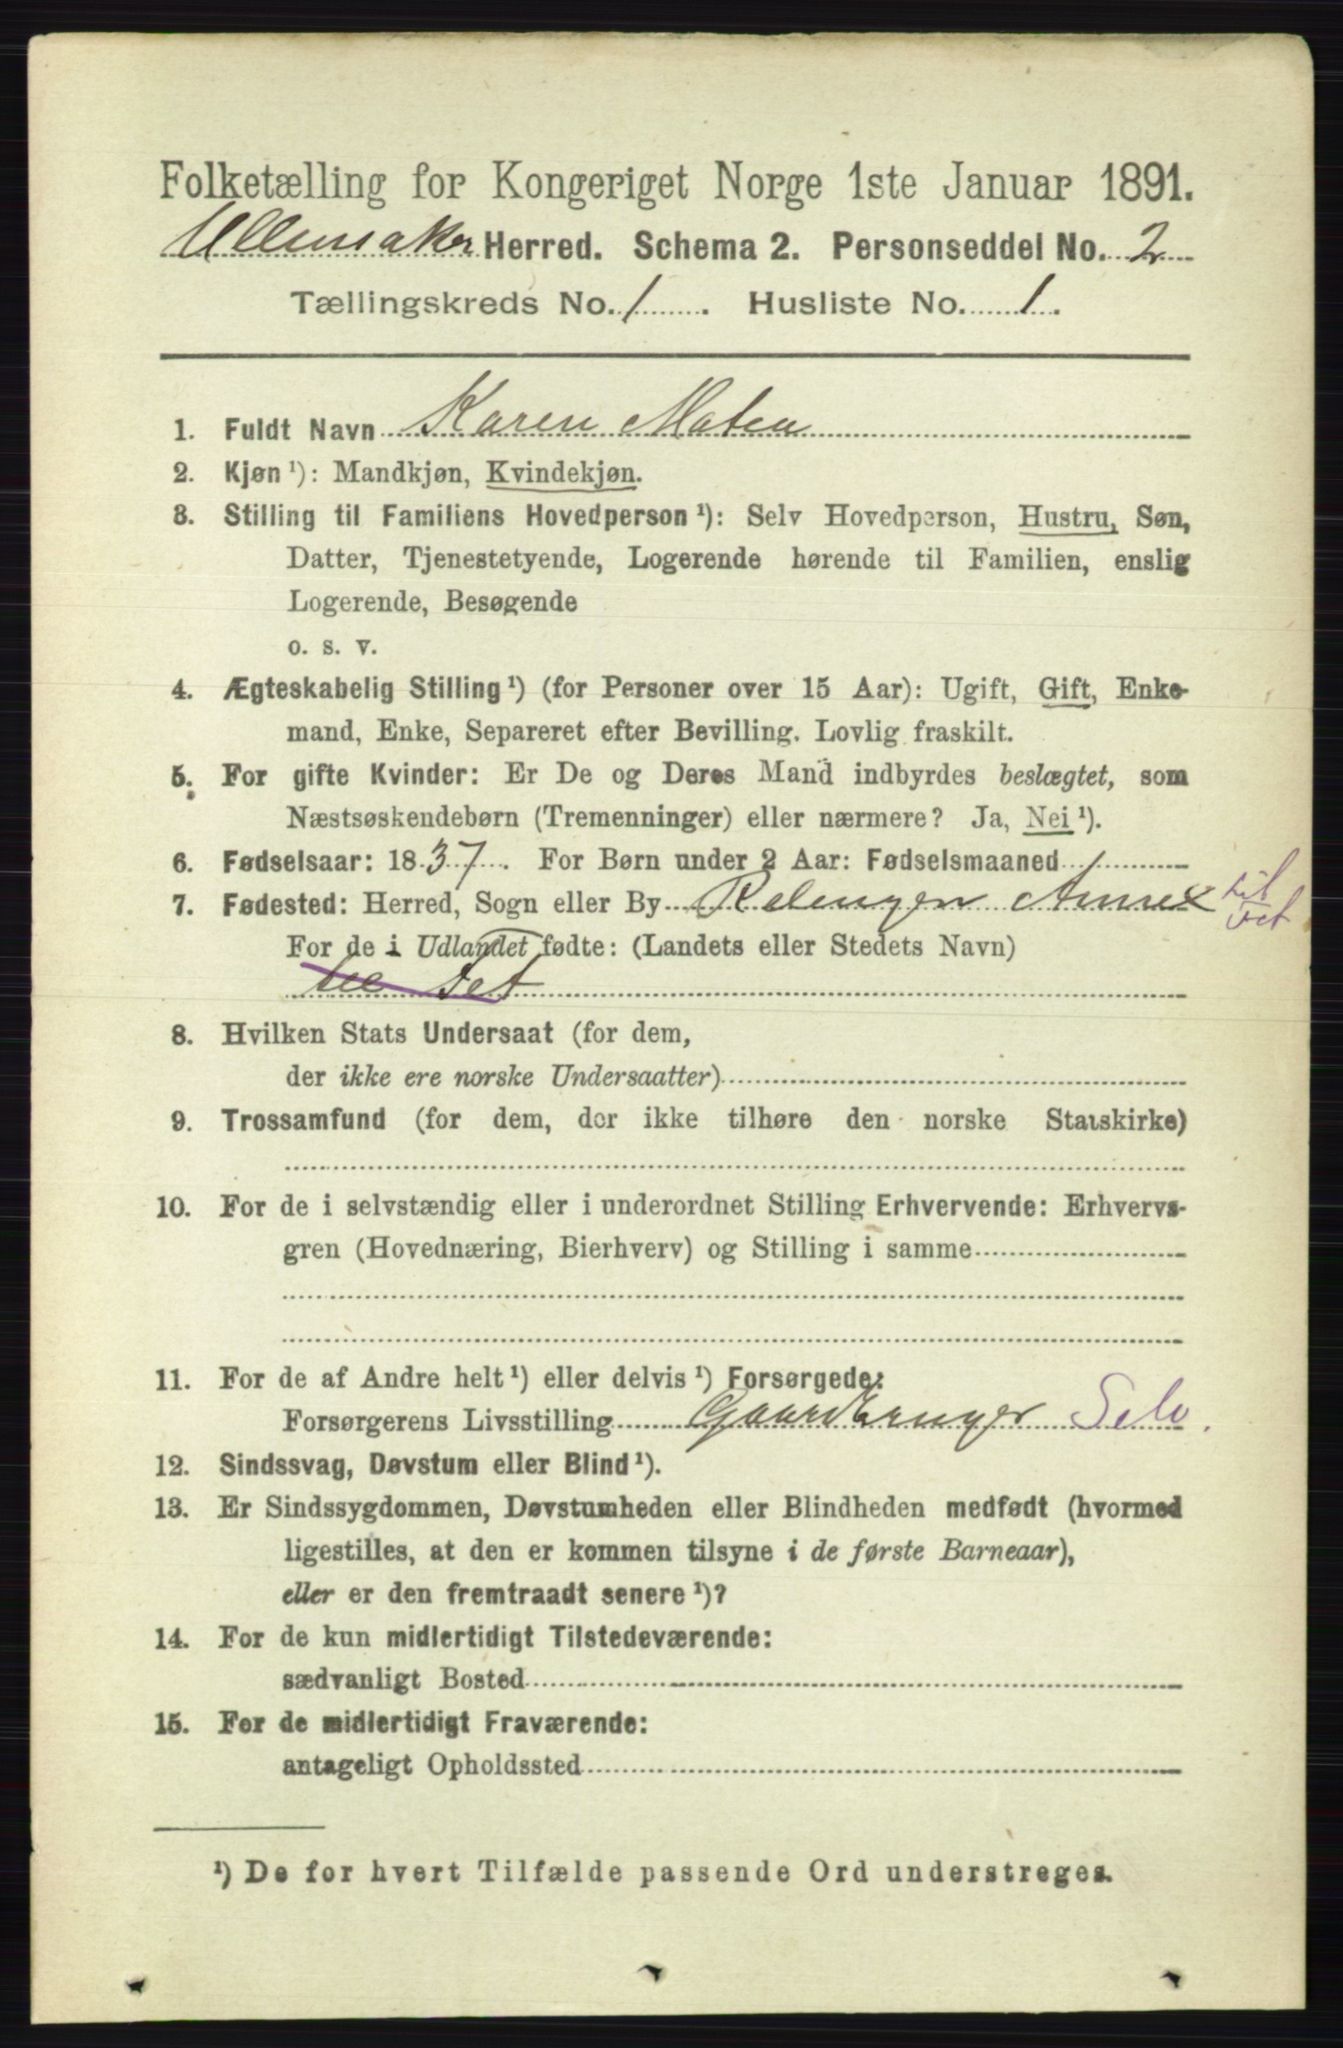 Folketælling for Kongeriget Norge 1ste Januar 1891.
Ullensaker Herred. Schema 2. Personseddel No. 2
Tællingskreds No. 1. Husliste No. 1.
1. Fuldt Navn Karen Matea
2. Kjøn ¹): Mandkjøn, Kvindekjøn.
3. Stilling til Familiens Hovedperson ¹): Selv Hovedperson, Hustru, Søn,
Datter, Tjenestetyende, Logerende hørende til Familien, enslig
Logerende, Besøgende
o. s. v.
4. Ægteskabelig Stilling ¹) (for Personer over 15 Aar): Ugift, Gift, Enke-
mand, Enke, Separeret efter Bevilling. Lovlig fraskilt.
5. For gifte Kvinder: Er De og Deres Mand indbyrdes beslægtet, som
Næstsøskendebørn (Tremenninger) eller nærmere? Ja, Nei ¹).
6. Fødselsaar: 1837. For Børn under 2 Aar: Fødselsmaaned
7. Fødested: Herred, Sogn eller By Relingen Annex til Fet
For de i Udlandet fødte: (Landets eller Stedets Navn)
til Fet
8. Hvilken Stats Undersaat (for dem,
der ikke ere norske Undersaatter)
9. Trossamfund (for dem, der ikke tilhøre den norske Statskirke)
10. For de i selvstændig eller i underordnet Stilling Erhvervende: Erhvervs-
gren (Hovednæring, Bierhverv) og Stilling i samme
11. For de af Andre helt ¹) eller delvis ¹) Forsørgede:
Forsørgerens Livsstilling Gaardbruger Selv.
12. Sindssvag, Døvstum eller Blind ¹).
13. Er Sindssygdommen, Døvstumheden eller Blindheden medfødt (hvormed
ligestilles, at den er kommen tilsyne i de første Barneaar),
eller er den fremtraadt senere ¹)?
14. For de kun midlertidigt Tilstedeværende:
sædvanligt Bosted
15. For de midlertidigt Fraværende:
antageligt Opholdssted
¹) De for hvert Tilfælde passende Ord understreges.